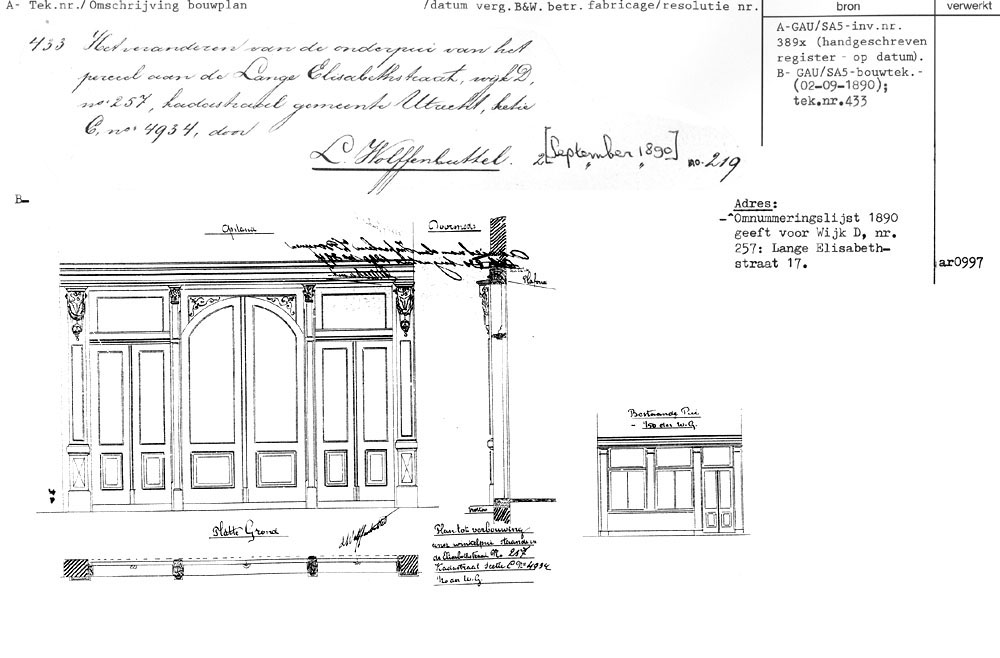 A- Tek.nr./Omschrijving bouwplan /datum verg.B&W. betr. fabricage/resolutie nr. bron verwerkt
433 Het veranderen van de onderpui van het
perceel aan de Lange Elisabethstraat, wijk D,
no 257, kadastraal gemeente Utrecht, sectie
C, no 4934, door
L. Wolffenbuttel. 2 [September 1890] no. 219
A-GAU/SA5-inv.nr.
389x (handgeschreven
register - op datum).
B- GAU/SA5-bouwtek.-
(02-09-1890);
tek.nr.433
B-
Adres:
-^Omnummeringslijst 1890
geeft voor Wijk D, nr.
257: Lange Elisabeth-
straat 17.
ar0997
Opstand
Doorsnede
Platte Grond
Plan tot verbouwing
No 257
Kadastraal Sectie C No 4934
Bestaande Pui